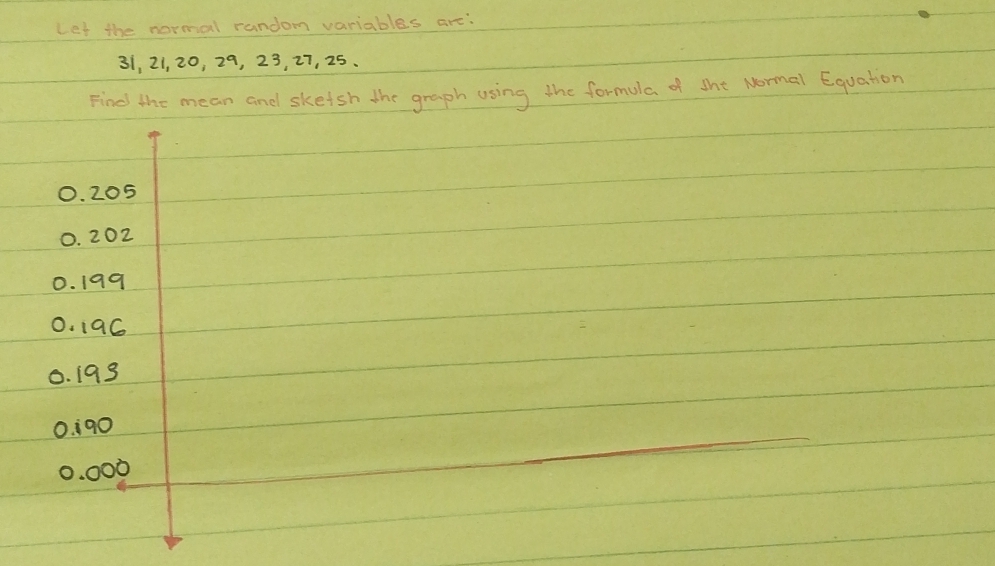 Let the normal random variables are:
31, 21, 20, 29, 23, 27, 25.
Find the mean and sketsh the graph using the formula of the Normal Equation
0.205
0.202
0.199
0.196
0.193
0.190
0.000